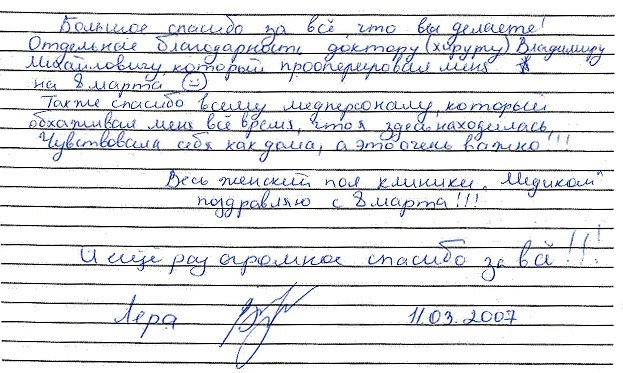 Большое спасибо за всё, что вы делаете!
Отдельная благодарность доктору (хирургу) Владимиру
Михайловичу, который прооперировал меня
на 8 марта ☺
Также спасибо всему медперсоналу, который
обхаживал меня всё время, что я здесь находилась,
Чувствовала себя как дома, а это очень важно!!!
Весь женский пол клиники „Медиком"
поздравляю с 8 марта!!!
И ещё раз огромное спасибо за всё!!!
Лера 11.03.2007